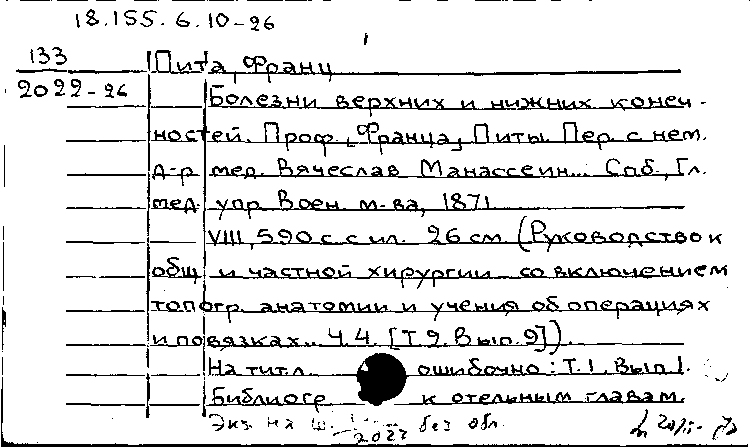 18.155.6.10-26
133
2022-26
Пита, Франц
Болезни верхних и нижних конеч-
ностей. Проф. Франца Питы. Пер. с нем.
д-р мед. Вячеслав Манассеин... Спб., Гл.
мед. упр. Воен. м-ва, 1871.
VIII, 590 с. с ил. 26 см. (Руководство к
общ. и частной хирургии со включением
топогр. анатомии и учения об операциях
и повязках... Ч.4. [Т.9. Вып. 9]).
На тит. л. ошибочно: Т.1, Вып 1.
Библиогр к отельным главам.
Экз. на ш. 2022 без обл.